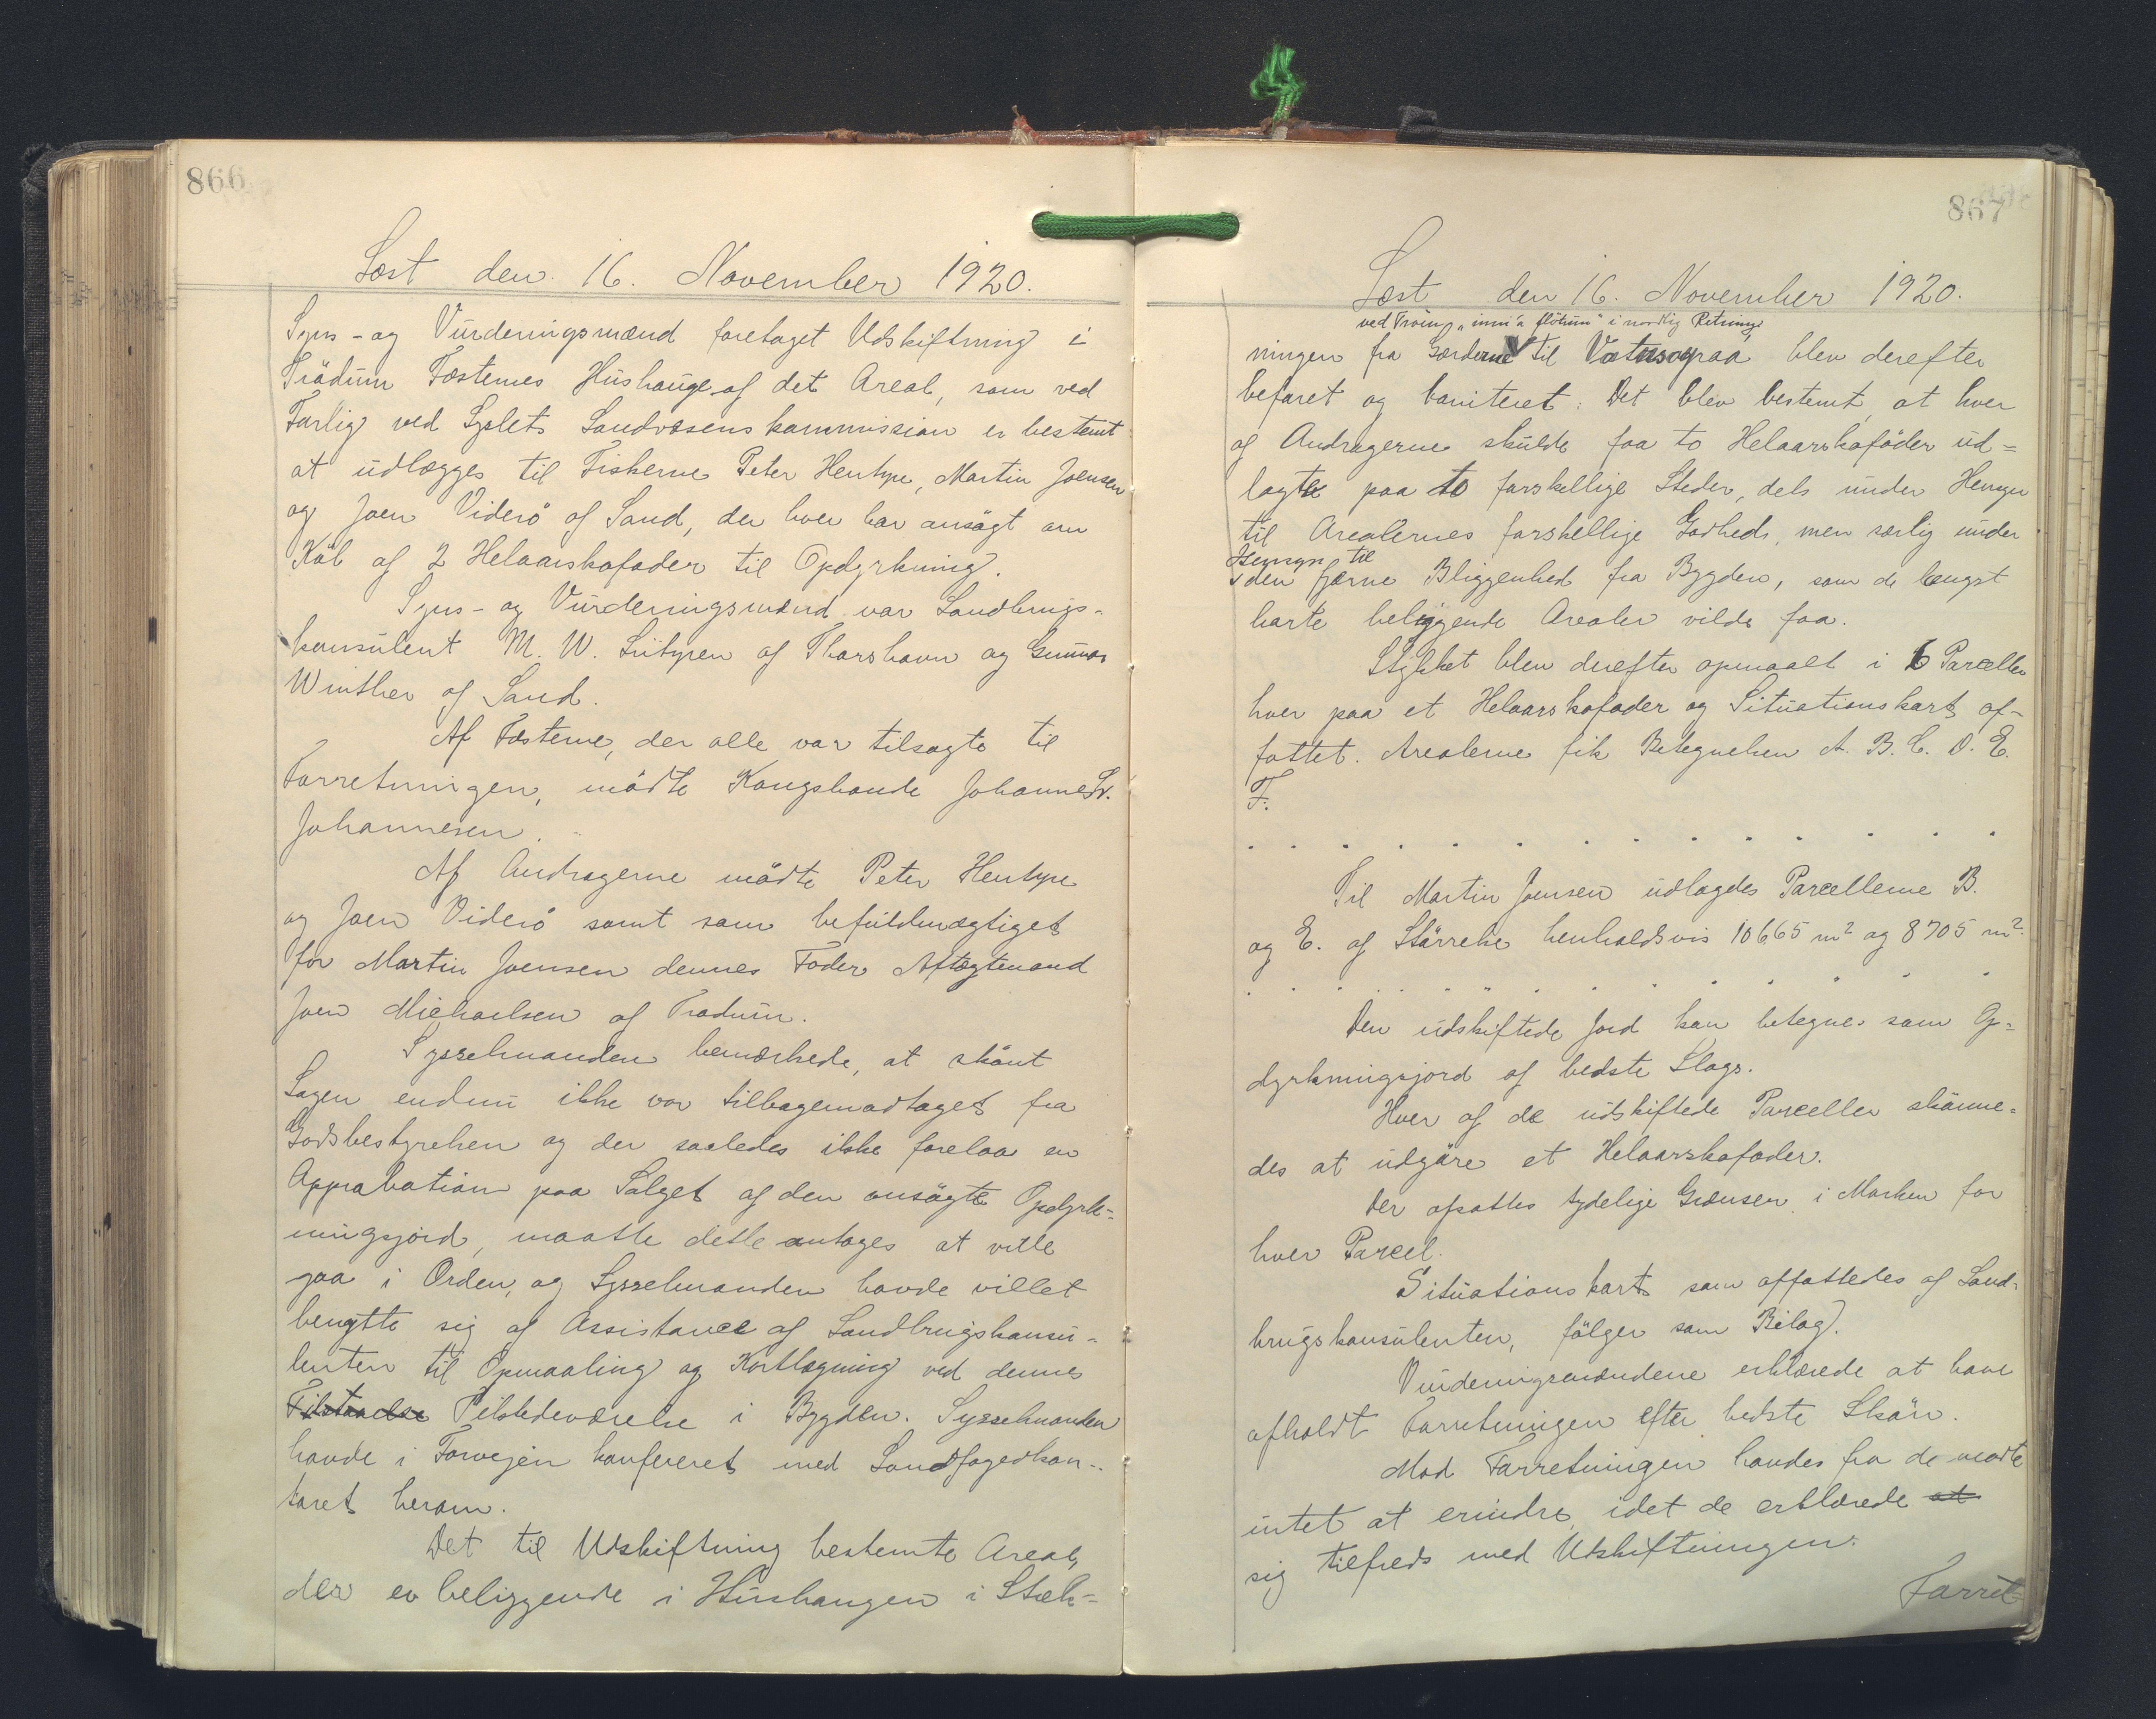 866
Læst den 16. November 1920.
Syns- og Vurderingsmænd foretaget Udskiftning i
Trödum Fæsternes Hushauge af det Areal, som ved
Forlig ved Syslets Landvæsenskommission er bestemt
at udlægges til Fiskerne Peter Hentze, Martin Joensen
og Joen Viderö af Sand, der hver har ansögt om
Köb af 2 Helaarskofoder til Opdyrkning.
Syns- og Vurderingsmænd var Landbrugs-
konsulent M. W. Lützen af Thorshavn og Gunnar
Winther af Sand.
Af Fæsterne, der alle var tilsagte til
Forretningen, mödte Kongsbonde Johannes Sv.
Johannesen.
Af Andragerne mödte Peter Hentze
og Joen Viderö samt som befuldmægtiget
for Martin Joensen dennes Fader Aftægtsmand
Joen Michaelsen af Tradum.
Sysselmanden bemærkede, at skönt
Sagen endnu ikke var tilbagemodtaget fra
Godsbestyrelsen og der saaledes ikke forelaa en
Approbation paa Salget af den ansögte Opdyrk-
ningsjord, maatte dette antages at ville
gaa i Orden, og Sysselmanden havde villet
benytte sig af Assistance af Landbrugskonsu-
lenten til Opmaaling og Kortlægning ved dennes
Tilstaaelse Tilstedeværelse i Bygden. Sysselmanden
havde i Forvejen konfereret med Landfogedkon-
toret herom.
Det til Udskiftning bestemte Areal,
der er beliggende i Hushaugen i Stræk-
867
Læst den 16. November 1920.
ved Tröing "inni á flötum" i nordlig Retning
ningen fra Gærderne til Vatnsoyraa, blev derefter
befaret og boniteret. Det blev bestemt, at hver
af Andragerne skulde faa to Helaarskofoder ud-
lagte paa to forskellige Steder, dels under Hensyn
til Arealernes forskellige Godhed, men særlig under
Hensyn til
den fjerne Bliggenhed fra Bygden, som de længst
borte beliggende Arealer vilde faa.
Stykket blev derefter opmaalt i 6 Parceller
hver paa et Helaarskofoder og Situationskort af-
fattet. Arealerne fik Betegnelsen A. B. C. D. E.
F.
. . . . . . . . . . . . .
Til Martin Joensen udlagdes Parcellerne B.
og E. af Störrelse henholdsvis 10665 m² og 8705 m².
. . . . . . . . . . . . .
Den udskiftede Jord kan betegnes som Op-
dyrkningsjord af bedste Slags.
Hver af de udskiftede Parceller skönne-
des at udgöre et Helaarskofoder.
Der afsattes tydelige Grænser i Marken for
hver Parcel.
Situationskort som affattedes af Land-
brugskonsulenten, fölger som Bilag.
Vurderingsmændene erklærede at have
afholdt Forretningen efter bedste Skön.
Mod Forretningen havdes fra de mödte
intet at erindre, idet de erklærede at
sig tilfreds med Udskiftningen.
Forret-